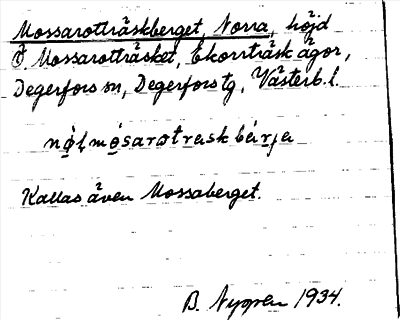 Mossarotträskberget, Norra, höjd
Ö. Mossarotträsket, Ekorrträsk ägor,
Degerfors sn, Degerfors tg, Västerb. l.
Kallas även Mossaberget.
B. Nygren 1934.